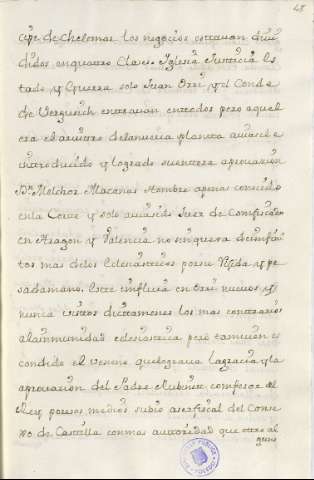 48
cipe de Chelomar los negocios estavan divi
didos en quatro Clases Iglesia Justicia Es
tado, y Guerra solo Juan Orri, y el Conde
de Vergueich entravan en todos pero aquel
era el arvitro de la nueva planta que avia
introduzido y logrado su entera aprovazion
Dn Melchor Macanas Hombre apenas conocido
en la Corte y solo avia sido Juez de Comfiscazon
en Aragon y Valencia no
tos mas de los Eclesiasticos por su Rijida, y pe
sada mano. Este influia en traer nuevos y
nunca vistos dictamenes los mas contrarios
a la inmunidad eclesiastica pero tan bien es
condido el veneno que lograva la gracia y la
aprovazion del Padre Rubinet comfesor del
Rey por esos medios subio a ser fiscal del Conse
xo de Castilla con mas autoridad que otro al
guno
BIBLIOTECA PUBLICA TOLEDO